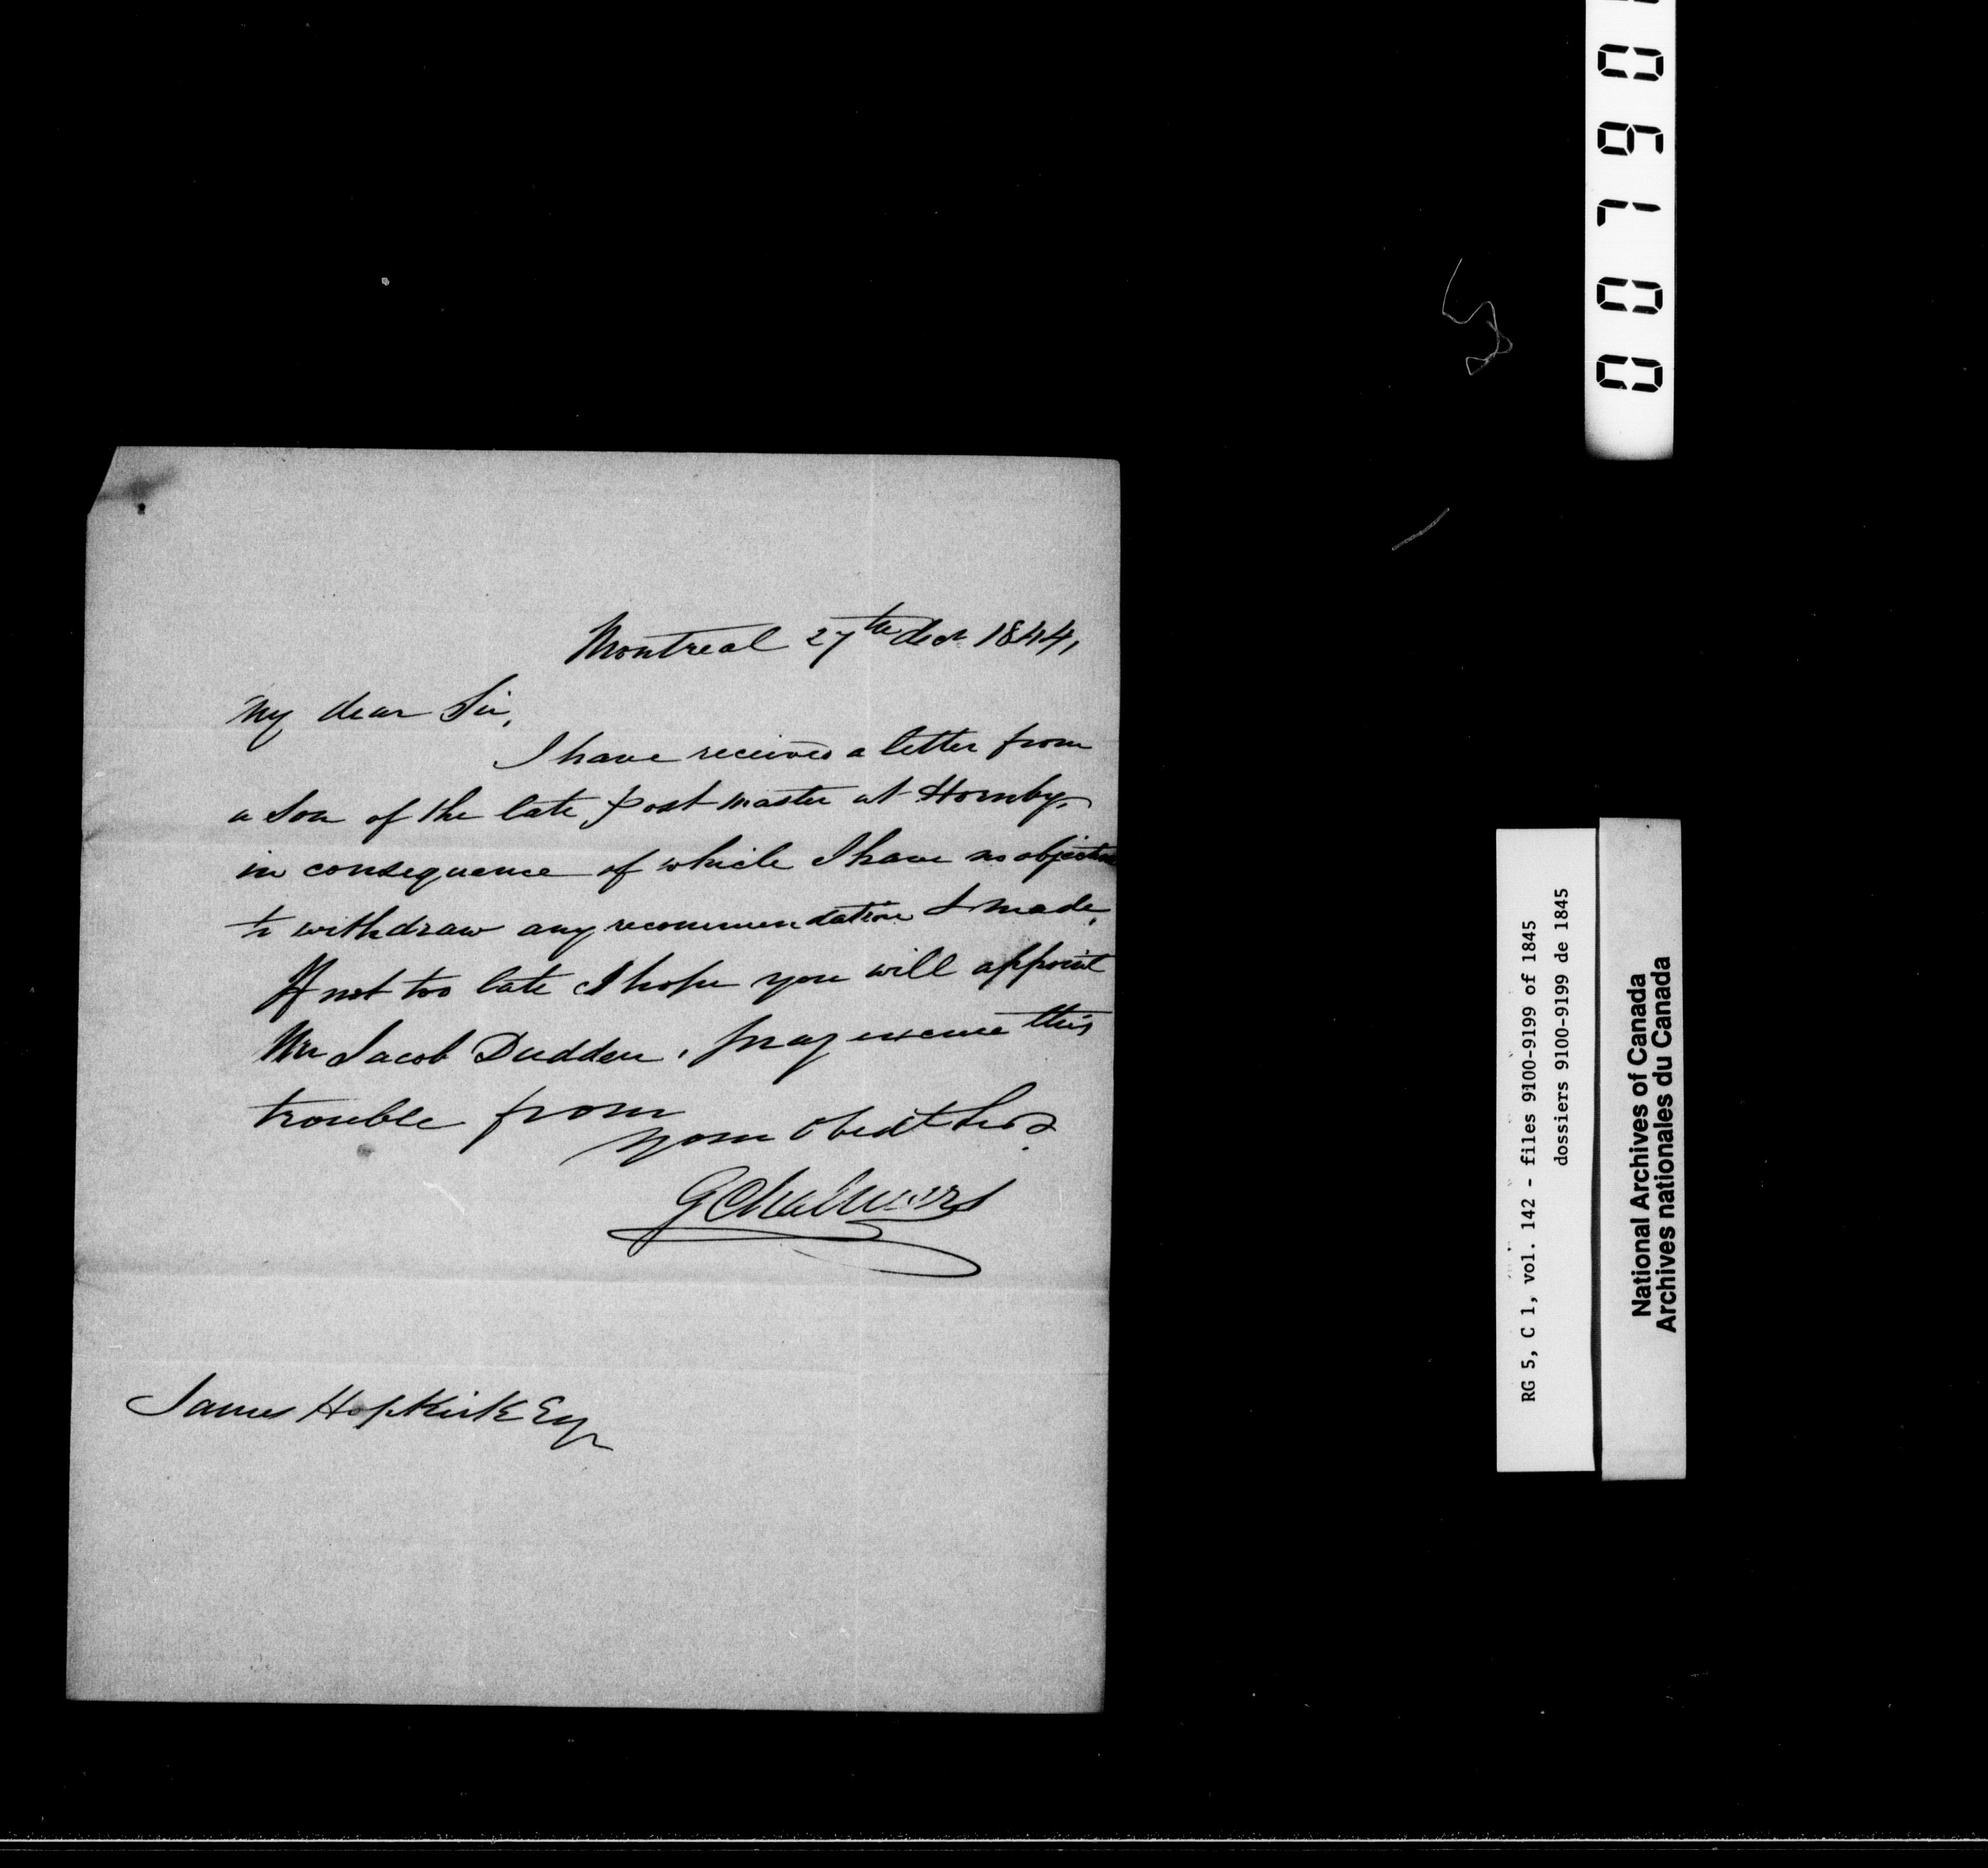 Montreal 27th decr 1844,
My dear Sir,
I have received a letter from
a Son of the late Post master at Hornby,
in consequence of which I have no objection
to withdraw any recommendation I made,
If not too late I hope you will appoint
Mr Jacob Dudden, pray excuse this
trouble from
your obedt Servt
G Chalmers
James Hopkirk Esqr
RG 5, C 1, vol. 142 - files 9100-9199 of 1845
dossiers 9100-9199 de 1845
National Archives of Canada
Archives nationales du Canada